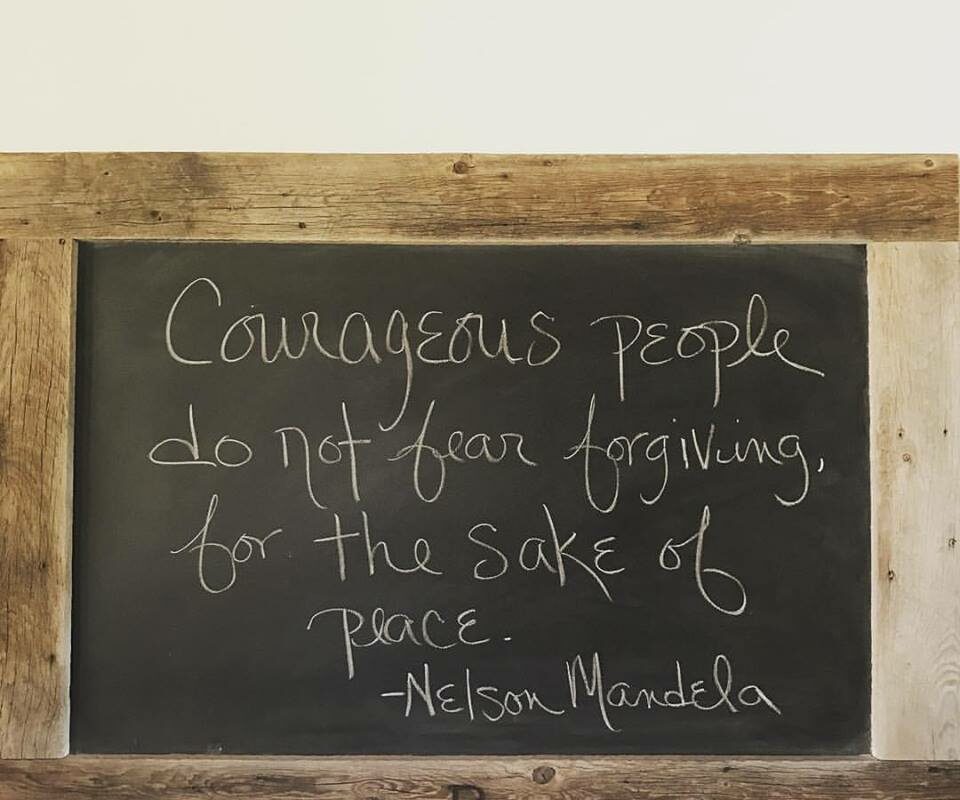 Courageous people
do not fear forgiving,
for the sake of
peace.
-Nelson Mandela